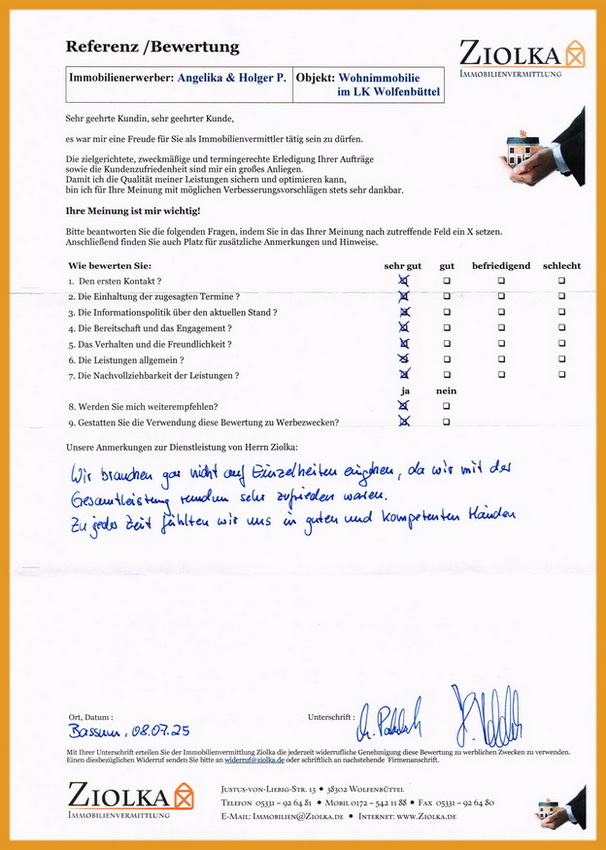 Referenz /Bewertung
ZIOLKA
IMMOBILIENVERMITTLUNG
Immobilienerwerber: Angelika & Holger P.
Objekt: Wohnimmobilie
im LK Wolfenbüttel
Sehr geehrte Kundin, sehr geehrter Kunde,
es war mir eine Freude für Sie als Immobilienvermittler tätig sein zu dürfen.
Die zielgerichtete, zweckmäßige und termingerechte Erledigung Ihrer Aufträge
sowie die Kundenzufriedenheit sind mir ein großes Anliegen.
Damit ich die Qualität meiner Leistungen sichern und optimieren kann,
bin ich für Ihre Meinung mit möglichen Verbesserungsvorschlägen stets sehr dankbar.
Ihre Meinung ist mir wichtig!
Bitte beantworten Sie die folgenden Fragen, indem Sie in das Ihrer Meinung nach zutreffende Feld ein X setzen.
Anschließend finden Sie auch Platz für zusätzliche Anmerkungen und Hinweise.
Wie bewerten Sie: sehr gut gut befriedigend schlecht
1. Den ersten Kontakt ?
2. Die Einhaltung der zugesagten Termine ?
3. Die Informationspolitik über den aktuellen Stand ?
4. Die Bereitschaft und das Engagement ?
5. Das Verhalten und die Freundlichkeit ?
6. Die Leistungen allgemein ?
7. Die Nachvollziehbarkeit der Leistungen ?
ja nein
8. Werden Sie mich weiterempfehlen?
9. Gestatten Sie die Verwendung diese Bewertung zu Werbezwecken?
Unsere Anmerkungen zur Dienstleistung von Herrn Ziolka:
Wir brauchen gar nicht auf Einzelheiten eingehen, da wir mit der
Gesamtleistung rundum sehr zufrieden waren.
Zu jeder Zeit fühlten wir uns in guten und kompetenten Händen
Ort, Datum :
Bassum, 08.07.25
Unterschrift :
Mit Ihrer Unterschrift erteilen Sie der Immobilienvermittlung Ziolka die jederzeit widerrufliche Genehmigung diese Bewertung zu werblichen Zwecken zu verwenden.
Einen diesbezüglichen Widerruf senden Sie bitte an widerruf@ziolka.de oder schriftlich an nachstehende Firmenanschrift.
ZIOLKA
IMMOBILIENVERMITTLUNG
JUSTUS-VON-LIEBIG-STR. 13 • 38302 WOLFENBÜTTEL
TELEFON 05331 – 92 64 81 • MOBIL 0172 – 542 11 88 • FAX 05331 – 92 64 80
E-MAIL: IMMOBILIEN@ZIOLKA.DE • INTERNET: WWW.ZIOLKA.DE